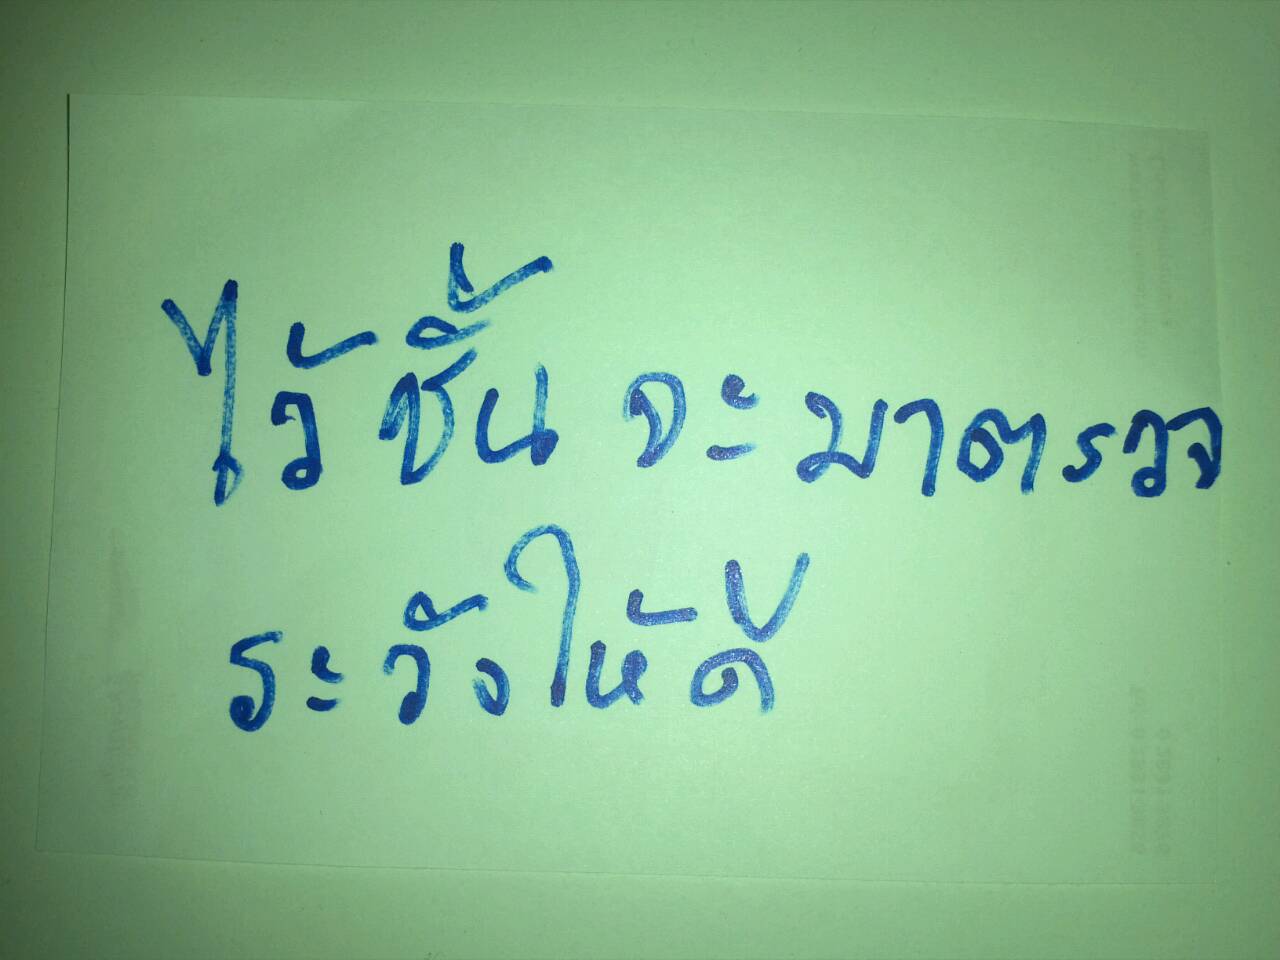 ไว้ชั้น จะมาตรวจ
ระวังให้ดี